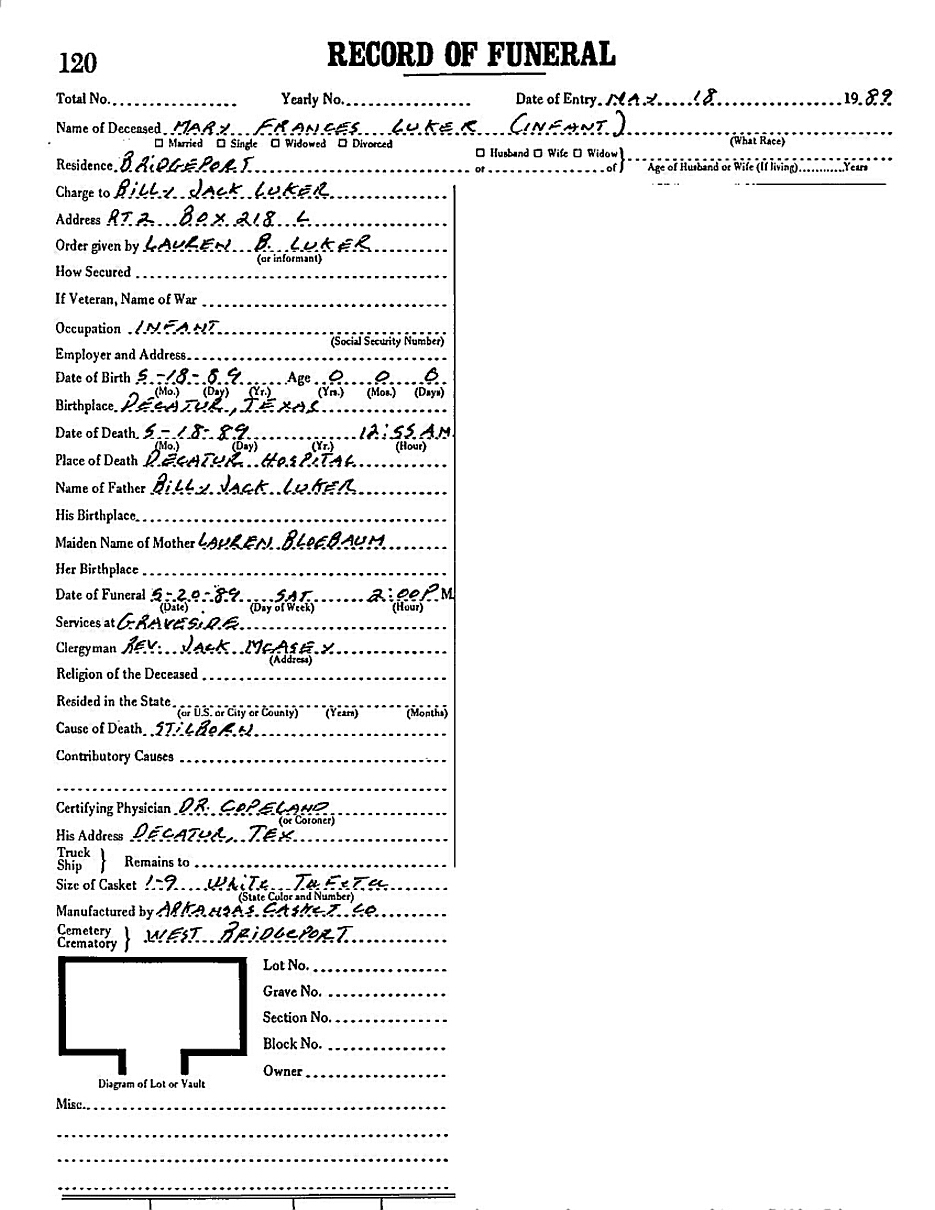 120
RECORD OF FUNERAL
Total No. Yearly No. Date of Entry MAY 18 1989
Name of Deceased MARY FRANCES LUKER (INFANT)
☐ Married ☐ Single ☐ Widowed ☐ Divorced (What Race)
Residence BRIDGEPORT ☐ Husband ☐ Wife ☐ Widow } or of Age of Husband or Wife (If living) Years
Charge to BILLY JACK LUKER
Address RT 2 BOX 218 L
Order given by LAUREN B. LUKER
(or informant)
How Secured
If Veteran, Name of War
Occupation INFANT
(Social Security Number)
Employer and Address
Date of Birth 5-18-89 Age 0 0 0
(Mo.) (Day) (Yr.) (Yrs.) (Mos.) (Days)
Birthplace DECATUR, TEXAS
Date of Death 5-18-89 12:55 AM
(Mo.) (Day) (Yr.) (Hour)
Place of Death DECATUR HOSPITAL
Name of Father BILLY JACK LUKER
His Birthplace
Maiden Name of Mother LAUREN BLOEBAUM
Her Birthplace
Date of Funeral 5-20-89 SAT 2:00 P.M.
(Date) (Day of Week) (Hour)
Services at GRAVESIDE
Clergyman REV. JACK MCASEY
(Address)
Religion of the Deceased
Resided in the State
(or U.S. or City or County) (Years) (Months)
Cause of Death STILBORN
Contributory Causes
Certifying Physician DR. COPELAND
(or Coroner)
His Address DECATUR, TEX
Truck
Ship } Remains to
Size of Casket 1-9 White Tafeta
(State Color and Number)
Manufactured by ARKANSAS CASKET CO
Cemetery
Crematory } WEST BRIDGEPORT
Lot No.
Grave No.
Section No.
Block No.
Owner
Diagram of Lot or Vault
Misc.